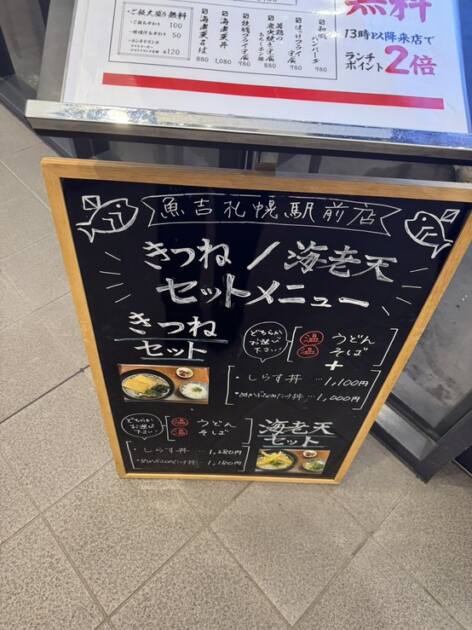 ・ご飯大盛り無料
100
50
120
海老天そば
880
海老天丼
1,080
880
880
和風ハンバーグ
無料
13時以降来店で
ランチ
ポイント2倍
魚吉札幌駅前店
きつね/海老天
セットメニュー
きつね
セット
どちらか
お選び
下さい!
温 うどん
温 そば
+
・しらす丼…1,100円
丼…1,000円
どちらか
お選び
下さい
温 うどん
温 そば
海老天
セット
・しらす丼…1,280円
丼…1,180円